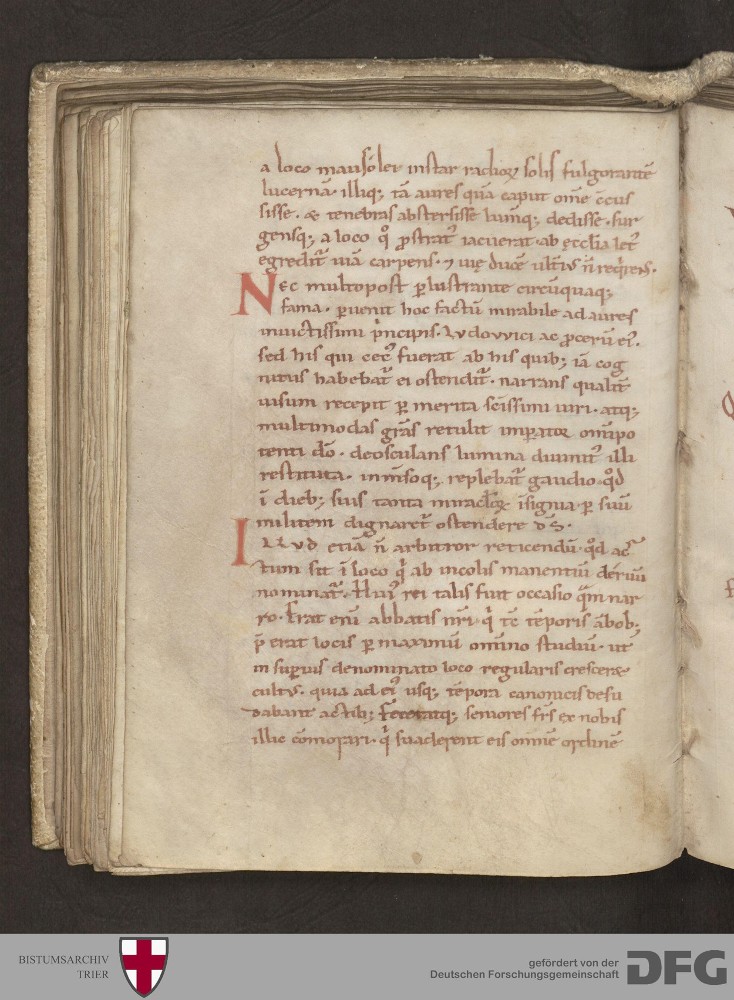 a loco mausolei instar radioꝝ solis fulgorantē
lucernā. illiq; tā aures quā caput om̄e c̄cus
sisse. & tenebras abstersisse lumq; dedisse. sur
gensq; a loco q° ꝓstratꝰ iacuerat. ab ęcclia letꝰ
egredit᷑ uiā carpens. ⁊ uię ducē ult̄iꝰ n̄ req̇rens.
Nec multopost ꝑlustrante circūquaq;
fama. ꝑuenit hoc factū mirabile ad aures
inuictissimi p̄ncipis. Ludovvici ac ꝓcerū eiꝰ.
sed his qui cecꝰ fuerat ab his quib; iā cog
nitus habebat᷑ ei ostendit᷑. narrans qualit̄
uisum recepit ꝑ merita sc̄issimi uiri. atq;
multimodas gr̄as retulit imperator om̄ipo
tenti dō. deosculans lumina diuinitꝰ illi
restituta. inm̄soq; replebat᷑ gaudio. qd̄
ī dieb; suis tanta miraculoꝝ īsignia ꝑ suū
militem dignaret᷑ ostendere d̄s.
Illud etiā n̄ arbitror reticendū. qd̄ ac
tum sit ī loco q̇ ab incolis manentiū
nominat᷑. Huiꝰ rei talis fuit occasio quā nar
ro. Erat eni abbatis nr̄i. q̇ tc̄ tēporis
p̄erat locis ꝑmaximū om̄ino studiū. ut
in supius denominato loco regularis cresceret
cultꝰ. quia ad eiꝰ usq; tēpora canonicis desu
dabant actib; Feceratq; seniores fr̄s ex nobis
illic cōmorari. q̇ suaderent eis omnē ordinē
BISTUMSARCHIV
TRIER
gefördert von der
Deutschen Forschungsgemeinschaft
DFG